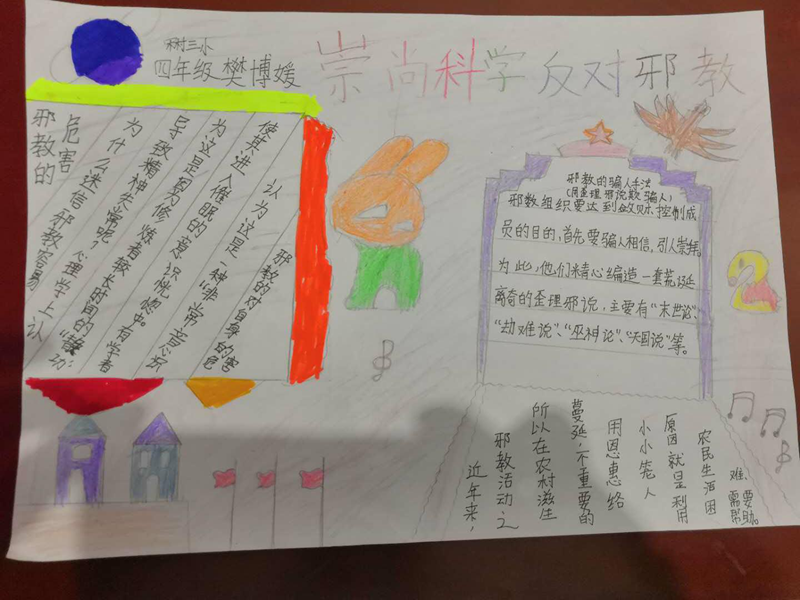 树三小
四年级 樊博媛
崇尚科学反对邪教
邪教的
危害
为什么迷信邪教容易
导致精神失常呢？心理学上认
为这是因为修炼者较长时间的“静功”
使其进入催眠的意识恍惚中。有学者
认为这是一种“非常意识
邪教的对自身的害危
邪教的骗人手法
(用歪理邪说欺骗人)
邪教组织要达到敛财、控制成
员的目的,首先要骗人相信,引人崇拜。
为此,他们精心编造一套荒诞
离奇的歪理邪说,主要有“末世论”、
“劫难说”、“巫神论”、“天国说”等。
近年来，
邪教活动之
所以在农村滋生
蔓延,不重要的
用恩惠络
小小笼人
原因就是利用
农民生活困
难、需要帮助。